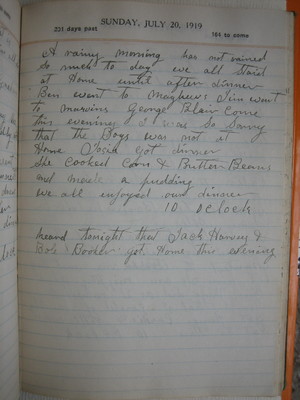 SUNDAY, JULY 20, 1919
201 days past
164 to come
A rainy morning has not rained
so much to day we all staid
at Home until after dinner
Ben went to Mayhews Jim went
to Marvins George Blair Come
this evening & I was so Sorry
that the Boys was not at
Home Ocia got dinner
She Cooked Corn & Butter Beans
and made a pudding
we all enjoyed our dinner
10 oclock
heard tonight that Jack Harvey &
Bob Booker got Home this evening